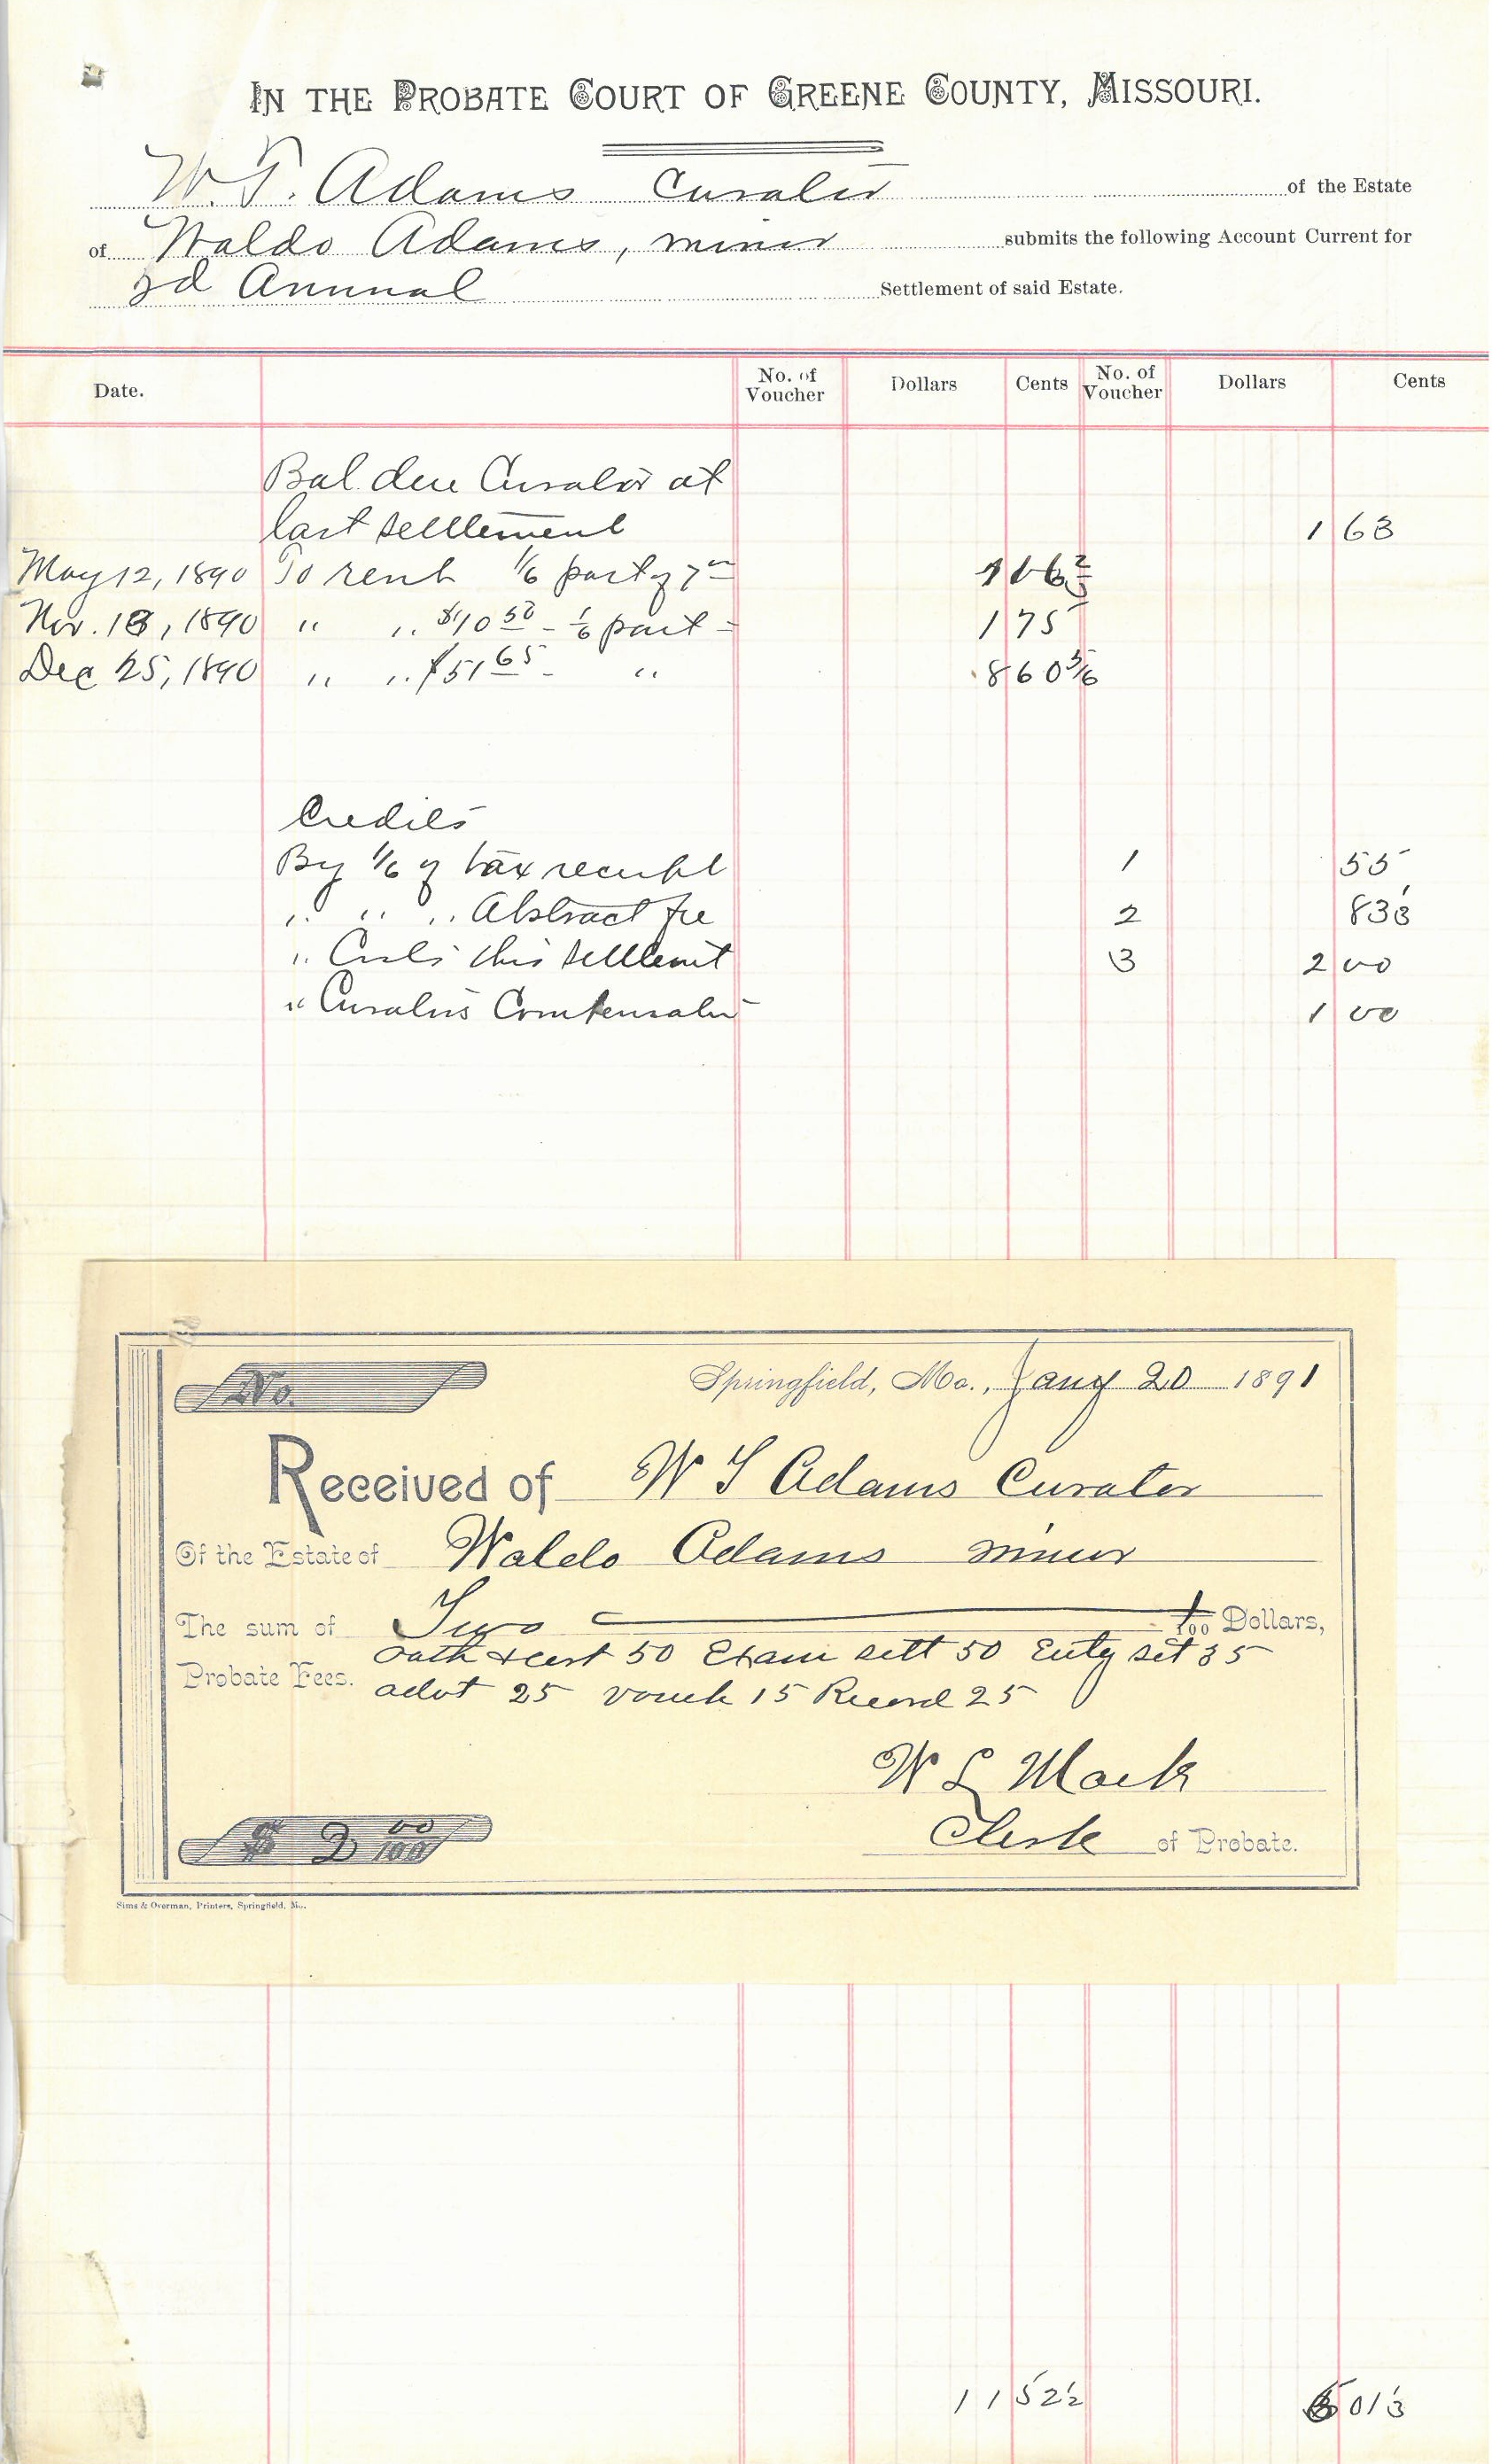 IN THE PROBATE COURT OF GREENE COUNTY, MISSOURI.
W. T. Adams Curator of the Estate
of Waldo Adams, minor submits the following Account Current for
3d Annual Settlement of said Estate.
Date. No. of Voucher Dollars Cents No. of Voucher Dollars Cents
Bal. due Curator at
last settlement 1 63
May 12, 1890 To rent 1/6 part of 7 00 1 16 2/3
Nov. 18, 1890 " " $10 50 - 1/6 part = 1 75
Dec 25, 1890 " " $51 65 - " 8 60 5/6
Credits
By 1/6 of tax receipt 1 55
" " " Abstract fee 2 83 1/3
" Costs this settlemt 3 2 00
" Curators Compensation 1 00
No. Springfield, Mo., Jany 20 1891
Received of W T Adams Curator
Of the Estate of Waldo Adams minor
The sum of Two /100 Dollars,
Probate Fees. Oath & cert 50 Exam sett 50 Entg set 35
advt 25 vouch 15 Record 25
W L Mack
$ 2 00/100 Clerk of Probate.
Sims & Overman, Printers, Springfield, Mo.
11 52 1/2 6 01 1/3